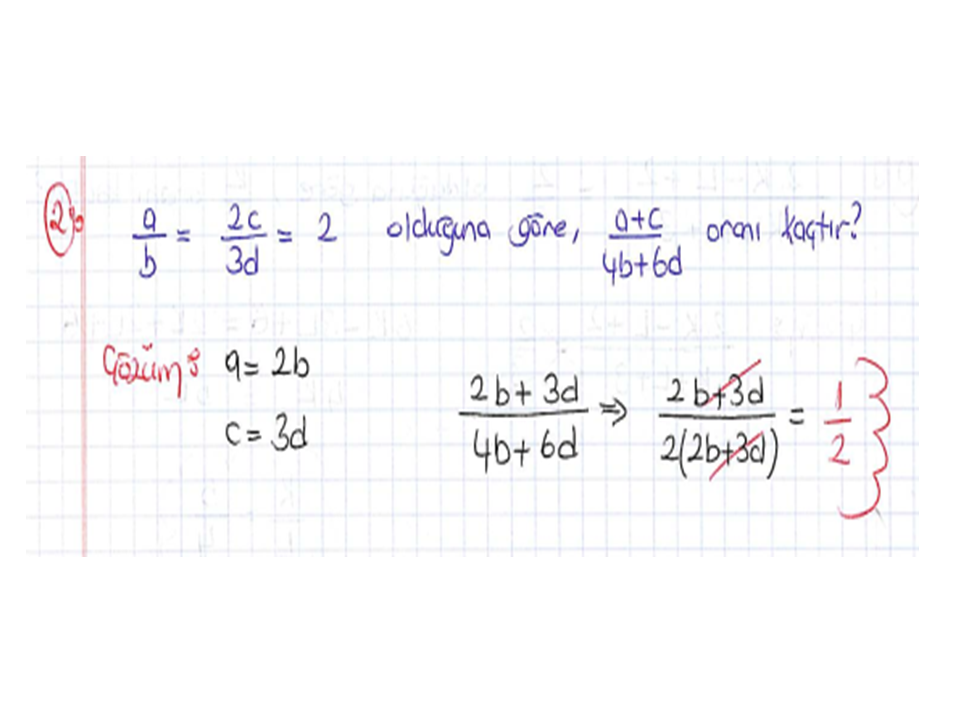 2) a/b = 2c/3d = 2 olduğuna göre, a+c/4b+6d oranı kaçtır?
Çözüm: a = 2b
c = 3d
2b + 3d/4b + 6d ⇒ 2b+3d/2(2b+3d) = 1/2